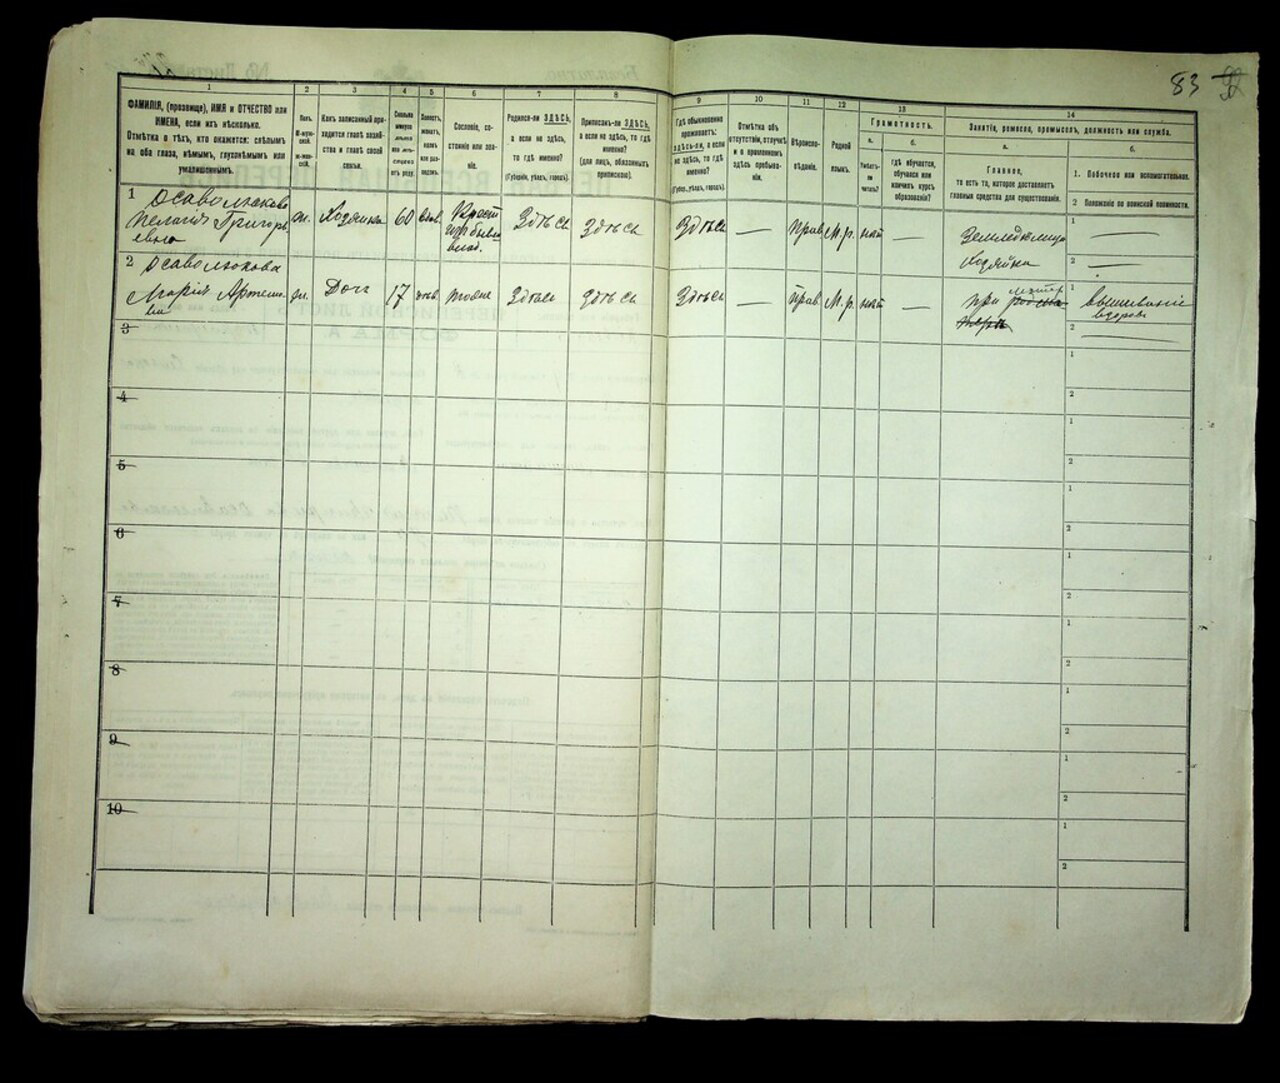 83
1
2
3
4
5
6
7
8
9
10
11
12
13
14
ФАМИЛІЯ, (прозвище), ИМЯ и ОТЧЕСТВО или
ИМЕНА, если ихъ нѣсколько.
Отмѣтка о тѣхъ, кто окажется: слѣпымъ
на оба глаза, нѣмымъ, глухонѣмымъ или
умалишеннымъ.
Полъ.
М-муж-
ской.
Ж-жен-
скій.
Какъ записанный при-
ходится главѣ хозяй-
ства и главѣ своей
семьи.
Сколько
минуло
лѣтъ
или мѣ-
сяцевъ
отъ роду.
Холостъ,
женатъ,
вдовъ
или раз-
веденъ.
Сословіе, со-
стояніе или зва-
ніе.
Родился-ли ЗДѢСЬ,
а если не здѣсь,
то гдѣ именно?
(Губернія, уѣздъ, городъ).
Приписанъ-ли ЗДѢСЬ,
а если не здѣсь, то гдѣ
именно?
(для лицъ, обязанныхъ
припискою).
Гдѣ обыкновенно
проживаетъ:
здѣсь-ли, а если
не здѣсь, то гдѣ
именно?
(Губерн., уѣздъ, городъ).
Отмѣтка объ
отсутствіи, отлучкѣ
и о временномъ
здѣсь пребыва-
ніи.
Вѣроиспо-
вѣданіе.
Родной
языкъ.
Грамотность.
а.
б.
Умѣетъ-
ли
читать?
гдѣ обучается,
обучался или
кончилъ курсъ
образованія?
Занятіе, ремесло, промыселъ, должность или служба.
а.
б.
Главное,
то есть то, которое доставляетъ
главныя средства для существованія.
1. Побочное или вспомогательное.
2 Положеніе по воинской повинности.
1
Осаволюкова
Пелагія Григорь
евна
ж.
Хозяйка
60
вдов.
Крест
бывш
влад.
Здѣсь
Здѣсь
Здѣсь
—
Прав
М.р.
нѣт
—
Земледѣлица
Хозяйка
1
—
2
—
2
Осаволюкова
Марія Артемь
ев
ж.
Доч
17
тоже
Здѣсь
Здѣсь
Здѣсь
—
Прав
М.р.
нѣт
—
при матер
1
вышиваніе
2
—
3
1
2
4
1
2
5
1
2
6
1
2
7
1
2
8
1
2
9
1
2
10
1
2